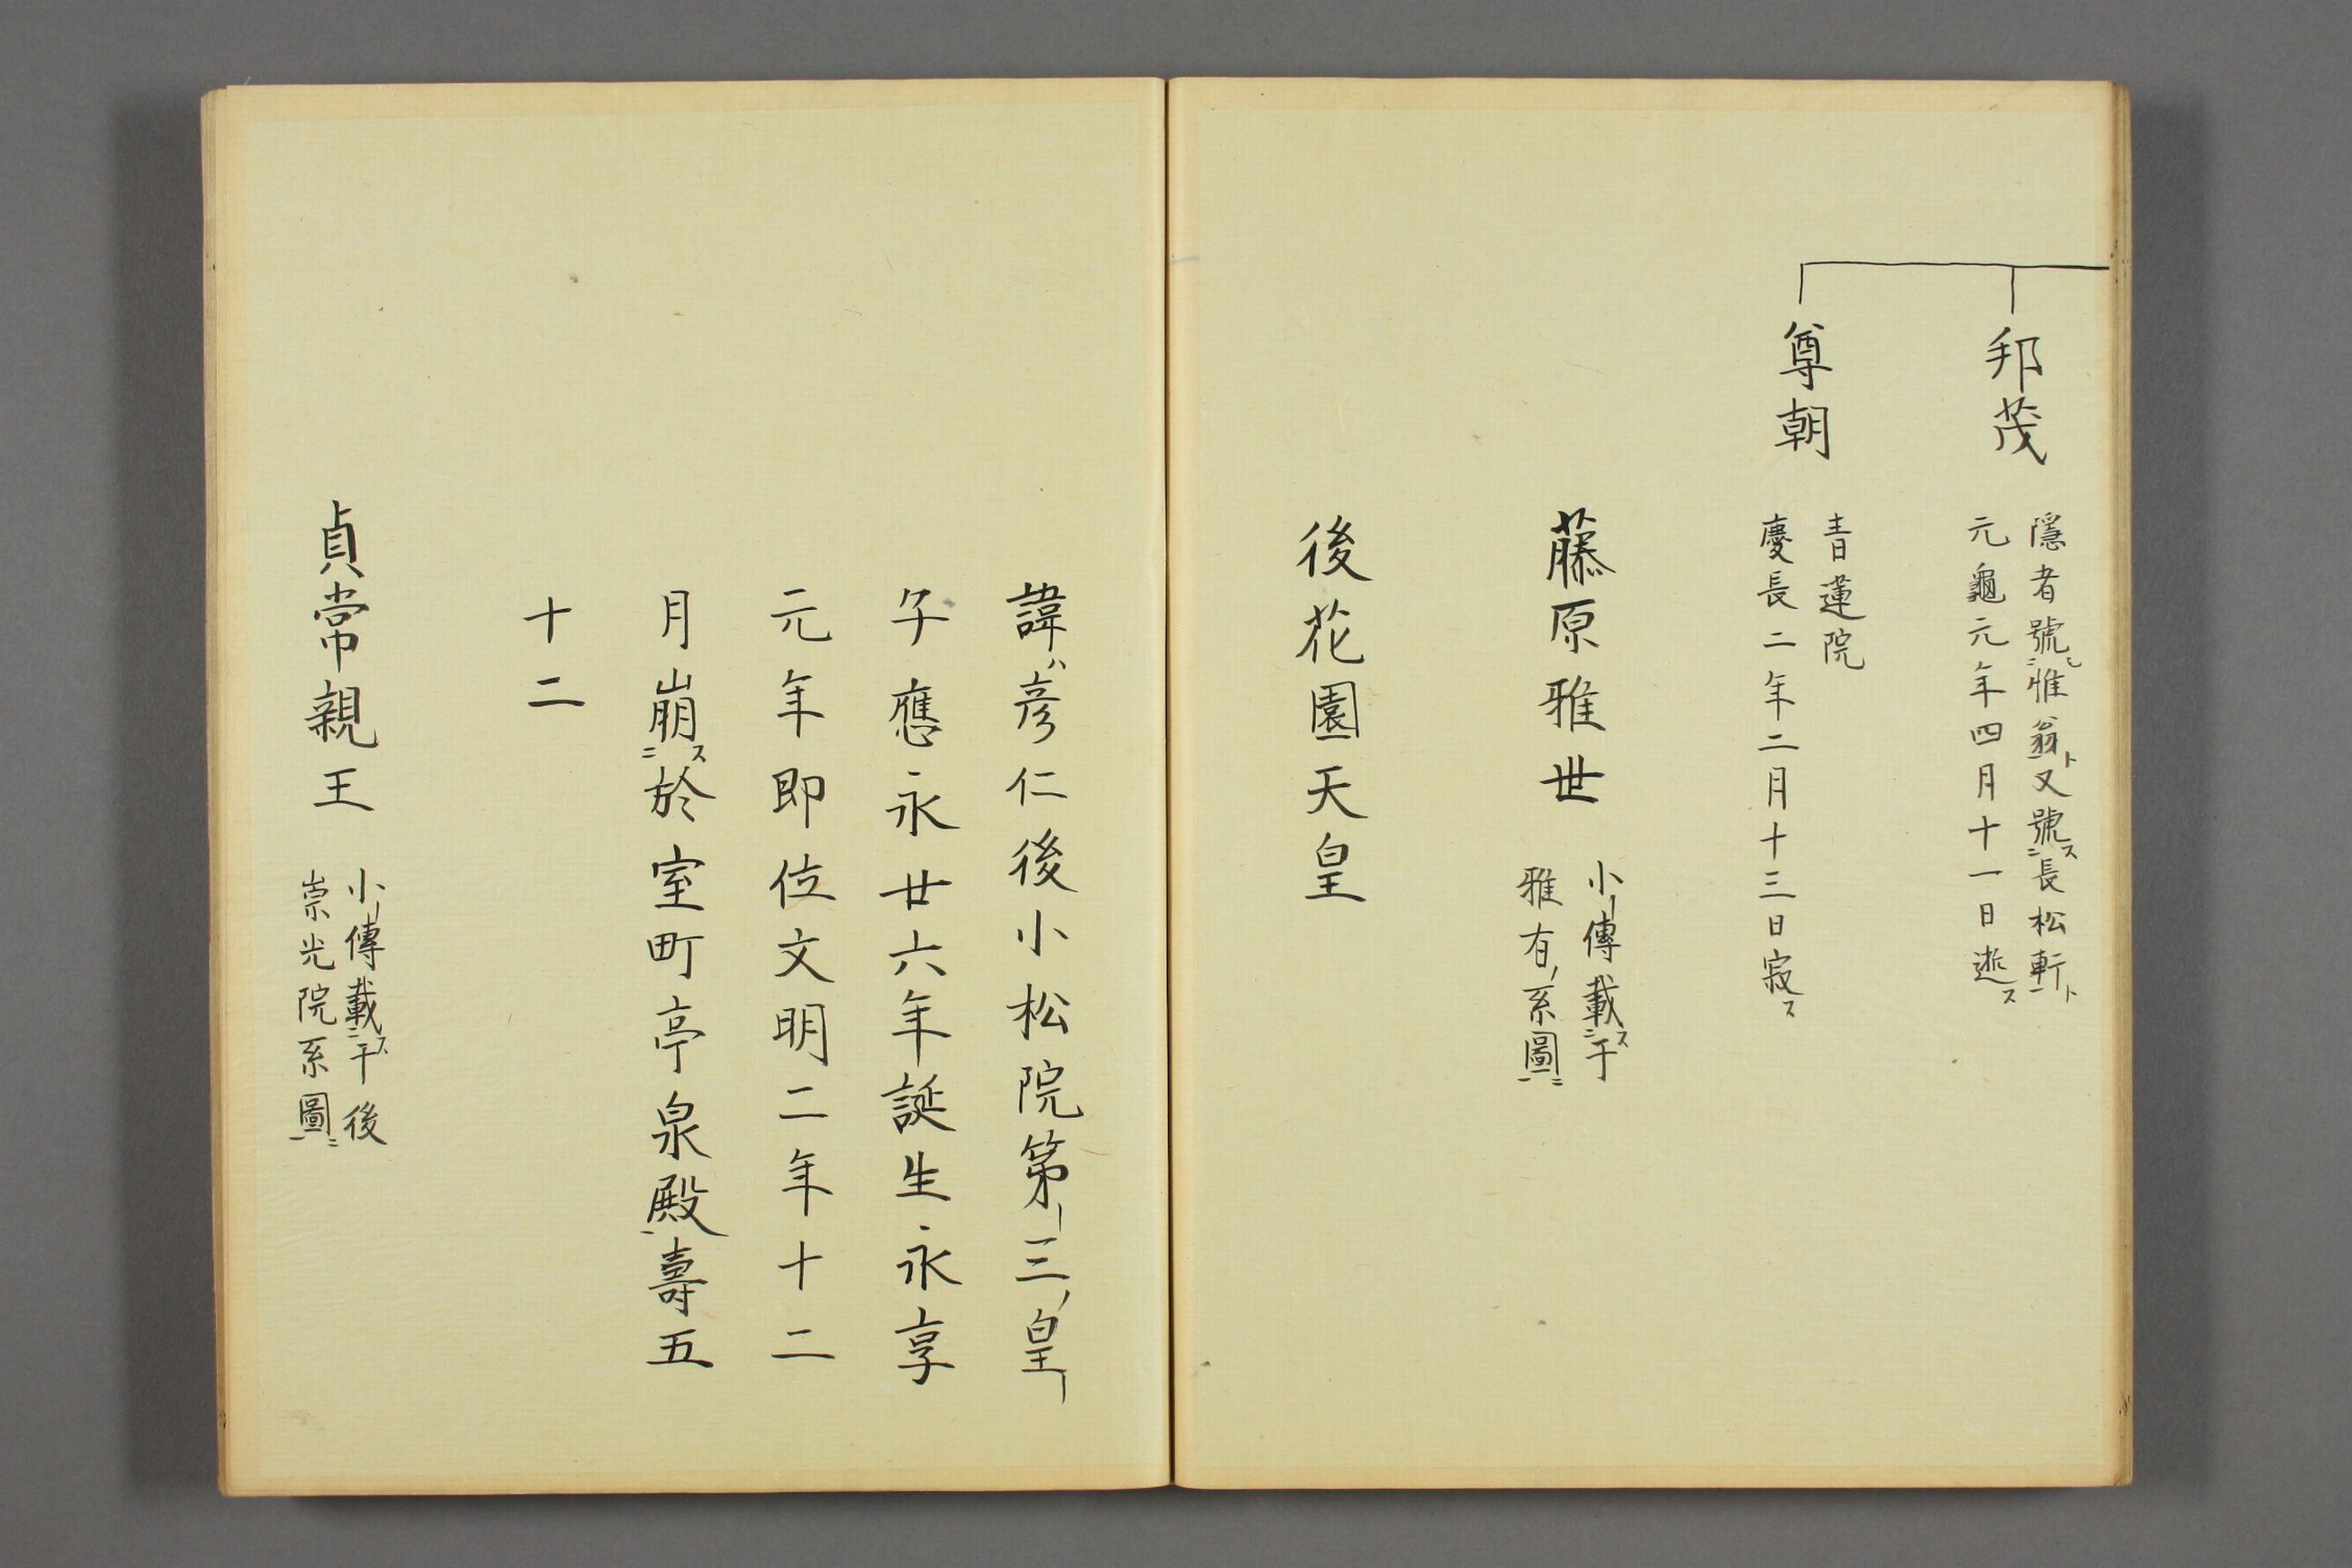 邦茂
隱者號㆓惟翁ト又號㆓ス長松軒㆒ト
元龜元年四月十一日逝ス
尊朝
青蓮院
慶長二年二月十三日寂ス
藤原雅世
小傳載㆓ス于
雅有ノ系圖㆒ニ
後花園天皇
諱ハ彦仁後小松院第一三ノ皇
子應永廿六年誕生永享
元年即位文明二年十二
月崩㆓ス於室町亭泉殿㆒壽五
十二
貞常親王
小傳載㆓ス于後
崇光院系圖㆒ニ